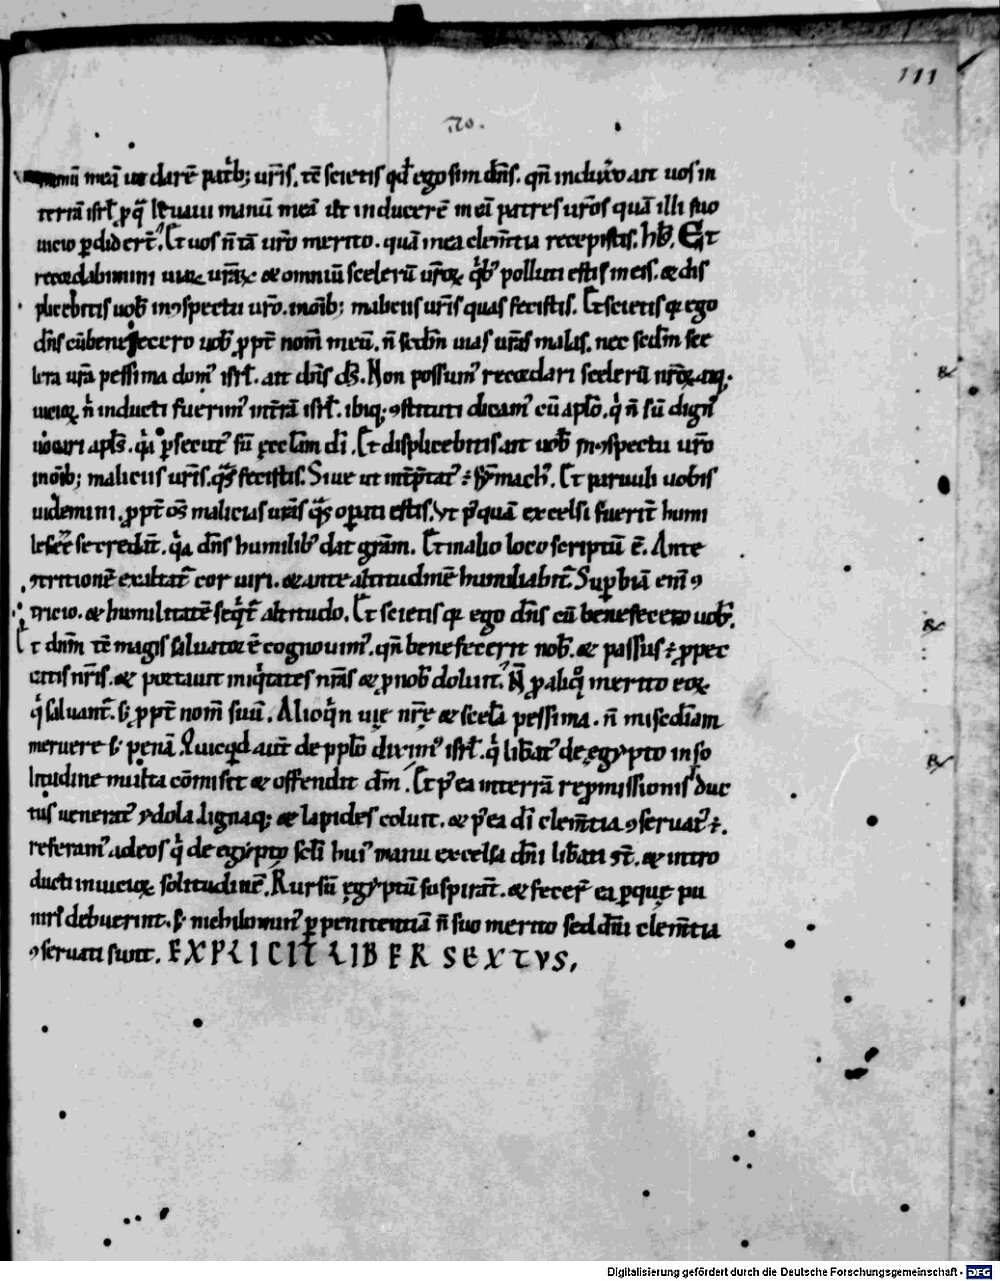 111
manū meā ut darē patrib; urīs. tē scietis qd̄ ego sim dn̄s. qn̄ induxero ait uos in
terrā isrl̄. p̄ q̄ leuaui manū meā ut inducerē in eā patres urōs quā illi suo
uicio ꝑdider̄t. Et uos n̄ tā urō merito. quā mea clem̄tia recepistis. hb̄. Et
recordabimini uiaꝝ urāꝝ et omniū scelerū urōꝝ qib; polluti estis in eis. et dis
plicebitis uob̄ in ↄspectu urō. in oīb; maliciis urīs quas fecistis. Et scietis qꝛ ego
dn̄s cū benefecero uob̄ ꝓpt̄ nom̄ meū. n̄ scdm̄ uias urās malas. nec scdm̄ sce
lera urā pessima dom; isrl̄. ait dn̄s ds̄. Non possum; recordari scelerū nrōꝝ antiq;
uicioꝝ. n̄ inducti fuerim; in t̄rā isrl̄. ibiq; ↄstituti dicam; cū aplō. qi n̄ sū dign;
uocari apls̄. qia ꝑsecut; sū ęcclam̄ dī. Et displicebitis ait uob̄ in ↄspectu urō
in oīb; maliciis urīs. qas fecistis. Siue ut int̄p̄tat; ÷ sym̄mach;. Et paruuli uobis
uidemini. ꝓpt̄ om̄s malicias urās qas opati estis. Vt p;quā excelsi fuerit̄ humi
les ec̄e se credūt. qia dn̄s humilib; dat grām. Et in alio loco scriptū ē. Ante
ↄtritionē exaltat̄ cor uiri. et ante altitudinē humiliabit̄. Supbiā enī ↄ
tricio. et humilitatē seqt̄ altitudo. Et scietis qꝛ ego dn̄s cū benefecero uob̄.
Et dnm̄ tē magis saluatorē cognouim;. qn̄ benefecerit nob̄. et passus ÷ ꝓ pec
catis nrīs. et portauit iniqitates nrās et ꝓ nob̄ doluit. N̄ ꝓ aliqo merito eoꝝ
qi saluant̄. s; ꝓpt̄ nom̄ suū. Alioqin uię nrę et sceła pessima. n̄ misc̄diam
meruere s; penā. Quicqd aut̄ de pplō diximus isrl̄. qi libat; de ęgypto in so
litudine multa cōmisit et offendit dm̄. Et p;ea in terrā repmissionis duc
tus uenerat; ydola. lignaq; et lapides coluit. et p;ea dī clem̄tia ↄseruat; ÷.
referam; ad eos qi de egypto sclī hui; manu excelsa dnī libati st̄. et intro
ducti in uicioꝝ solitudinē. Rursū ęgyptū suspirat̄. et fecer̄ ea ꝑ quę pu
niri debuerint. s; nichilomin; ꝑ penitentiā n̄ suo merito sed dnī clem̄tia
ↄseruati sunt. EXPLICIT LIBER SEXTVS.
Digitalisierung gefördert durch die Deutsche Forschungsgemeinschaft - DFG